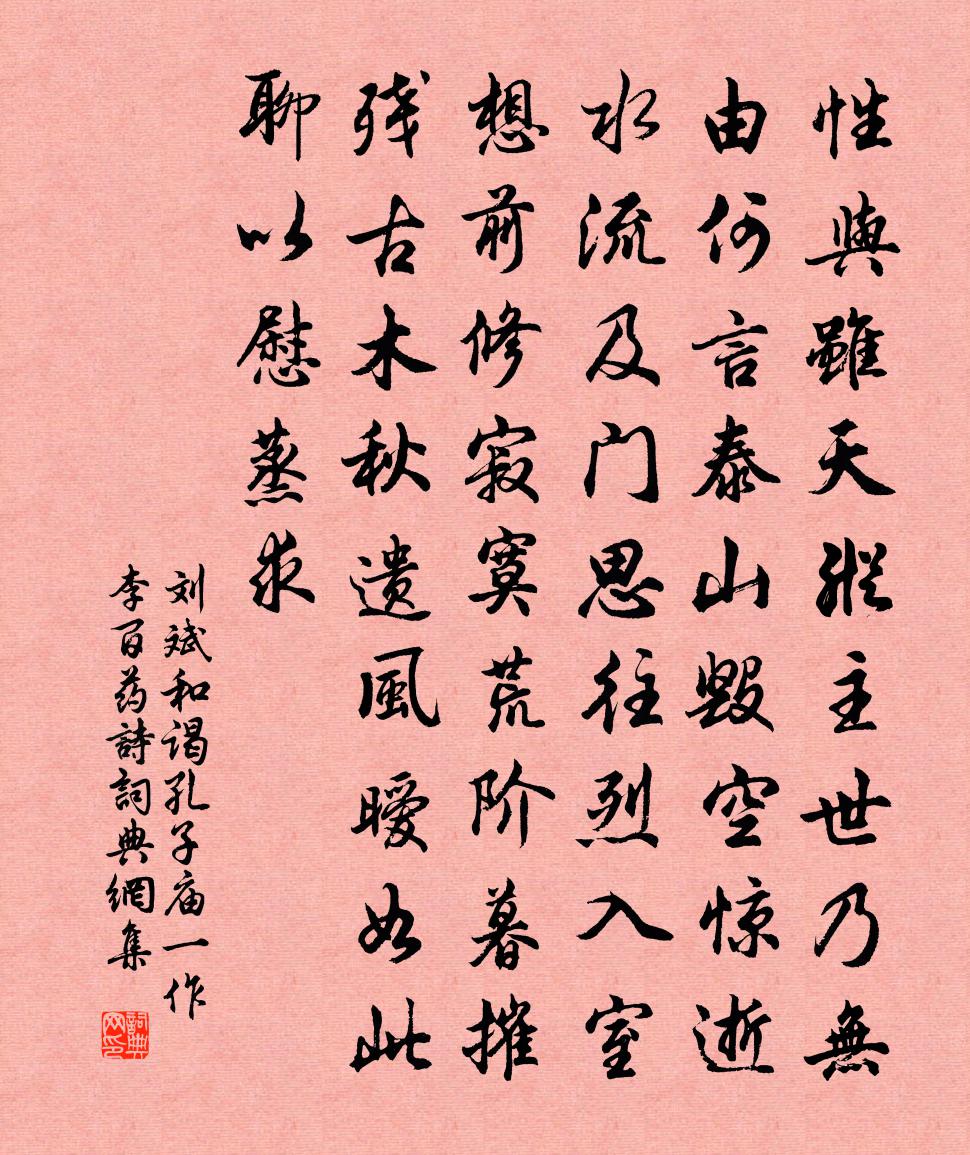 性與雖天縱主世乃無
由何言泰山毁空惊逝
水流及门思往烈入室
想前修寂寞荒阶暮摧
残古木秋遗風曖如此
聊以慰蒸求
刘斌和谒孔子庙一作
李百药詩詞典網集
詞典网